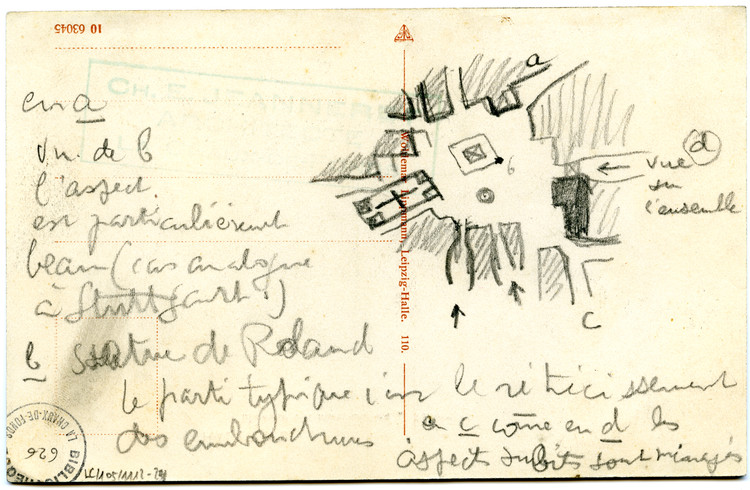 10 63045
CH. E. JEANNERET
en a
vu de b
l'aspect
est particulièrement
beau (cas analogue
à Stuttgart !)
b statue de Roland
le parti typique ici le rétrécissement
des embouchures
en c comme en d les
aspects subits sont ménagés
a
b
d
vue
sur
l'ensemble
c
Leipzig-Halle. 110.
BIBLIOTHÈQUE
LA CHAUX-DE-FONDS
626